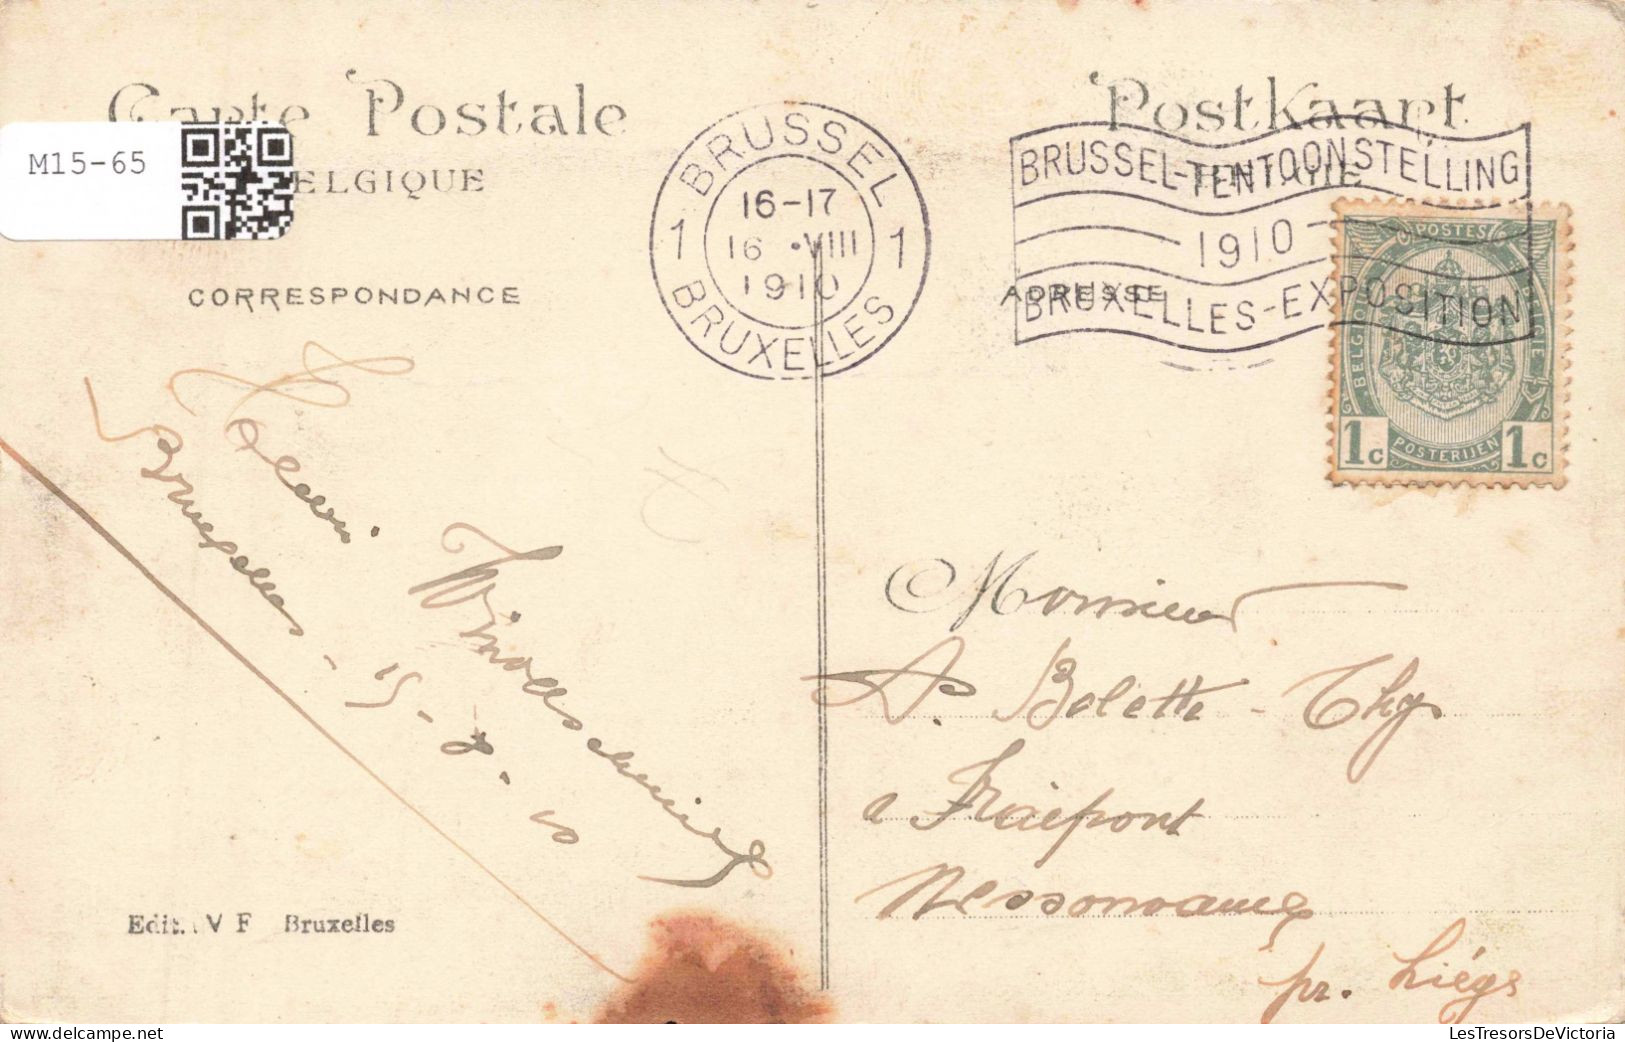 Carte Postale
Postkaart
M15-65
ELGIQUE
CORRESPONDANCE
BRUSSEL
1 16-17 1
16 VIII
1910
BRUXELLES
BRUSSEL-TENTOONSTELLING
1910
BRUXELLES-EXPOSITION
ADRESSE
POSTES
BELGIQUE
BELGIE
POSTERIJEN
1c 1c
Bruxelles - 15-8-10
Monsieur
A. Bolette - Thys
a Fraipont
Nessonvaux
pr. Liége
Edit. V F Bruxelles
LesTresorsDeVictoria